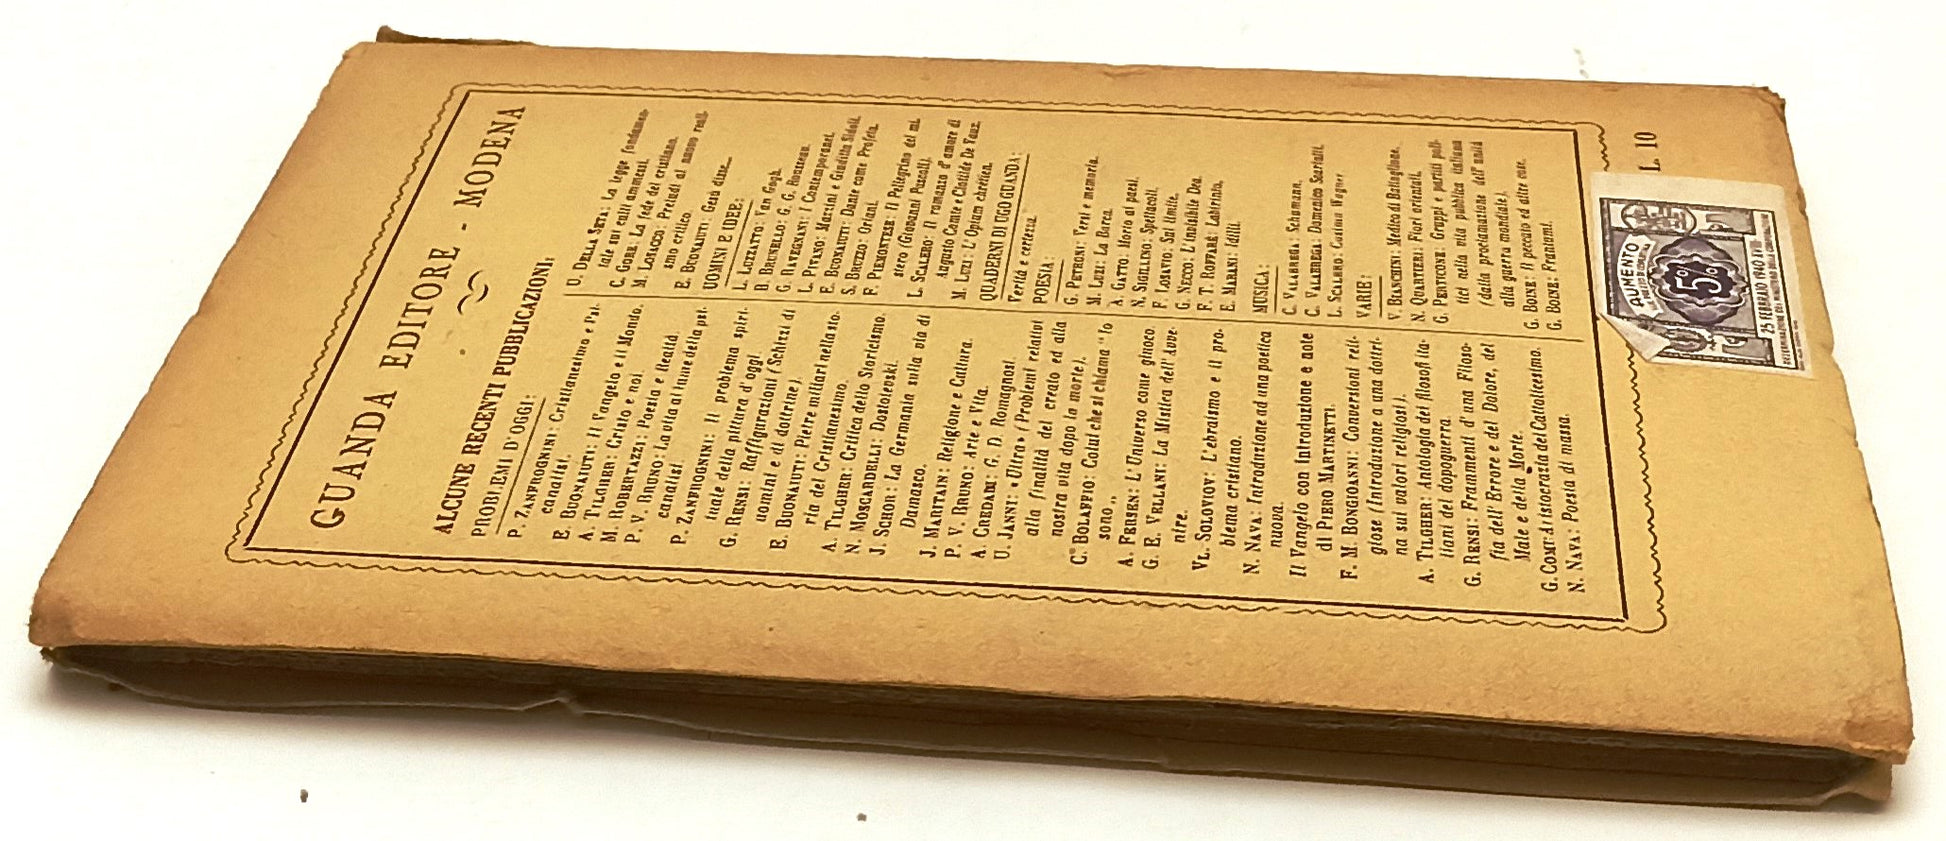 GUANDA EDITORE - MODENA
ALCUNE RECENTI PUBBLICAZIONI:
PROBLEMI D'OGGI:
P. ZANFROGNINI: Cristianesimo e Psi-
canalisi.
E. BUONAIUTI: Il Vangelo e il Mondo.
A. TILGHER: Cristo e noi.
M. ROBERTAZZI: Poesia e Realtà.
P. V. BRUNO: La vita al lume della psi-
canalisi.
P. ZANFROGNINI: Il problema spiri-
tuale della pittura d'oggi.
G. RENSI: Raffigurazioni (Schizzi di
uomini e di dottrine).
E. BUONAIUTI: Pietre miliari nella sto-
ria del Cristianesimo.
A. TILGHER: Critica dello Storicismo.
N. MOSCARDELLI: Dostoievski.
J. SCHOR: La Germania sulla via di
Damasco.
J. MARITAIN: Religione e Cultura.
P. V. BRUNO: Arte e Vita.
A. CREDARI: G. D. Romagnosi.
U. JANNI: «Ultra» (Problemi relativi
alla finalità del creato ed alla
nostra vita dopo la morte).
C. BOLAFFIO: Colui che si chiama "Io
sono„
A. FERSEN: L'Universo come giuoco.
G. E. VELLANI: La Mistica dell'Avve-
nire.
VL. SOLOVIOV: L'ebraismo e il pro-
blema cristiano.
N. NAVA: Introduzione ad una poetica
nuova.
Il Vangelo con introduzione e note
di PIERO MARTINETTI.
F. M. BONGIOANNI: Conversioni reli-
giose (Introduzione a una dottri-
na sui valori religiosi).
A. TILGHER: Antologia dei filosofi ita-
liani del dopoguerra.
G. RENSI: Frammenti d'una Filoso-
fia dell'Errore e del Dolore, del
Male e della Morte.
G. COMI: Aristocrazia del Cattolicesimo.
N. NAVA: Poesia di massa.
U. DELLA SETA: La legge fondamen-
tale sui culti ammessi.
C. GORE: La fede del cristiano.
M. LOSACCO: Preludi al nuovo reali-
smo critico.
E. BUONAIUTI: Gesù disse...
UOMINI E IDEE:
L. LUZZATTO: Van Gogh.
B. BRUNELLO: G. G. Rousseau.
G. RAVEGNANI: I Contemporanei.
L. PIVANO: Mazzini e Giuditta Sidoli.
E. BUONAIUTI: Dante come Profeta.
S. BRUZZO: Oriani.
F. PIEMONTESE: Il Pellegrino del mi-
stero (Giovanni Pascoli).
L. SCALERO: Il romanzo d'amore di
Augusto Comte e Clotilde De Vaux.
M. LUZI: L'Opium chrétien.
QUADERNI DI UGO GUANDA:
Verità e certezza.
POESIA:
G. PETRONI: Versi e memoria.
M. LUZI: La Barca.
A. GATTO: Morto ai paesi.
N. SIGILLINO: Spettacoli.
F. LOSAVIO: Sul limite.
G. NECCO: L'invisibile Dea.
F. T. ROFFARÈ: Labirinto.
E. MARANI: Idilli.
MUSICA:
C. VALABREGA: Schumann.
C. VALABREGA: Domenico Scarlatti.
L. SCALERO: Cosima Wagner.
VARIE:
V. BIANCHINI: Medico di Battaglione.
N. QUARTIERI: Fiori orientali.
G. PERTICONE: Gruppi e partiti poli-
tici nella vita pubblica italiana
(dalla proclamazione dell'unità
alla guerra mondiale).
G. BOINE: Il peccato ed altre cose.
G. BOINE: Frantumi.
L. 10
AUMENTO
5%
25 FEBBRAIO 1940 XVIII